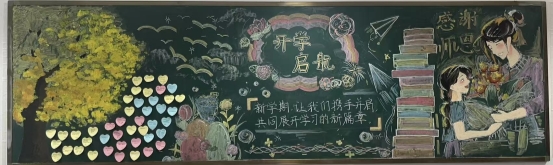 开学
启航
新学期,让我们携手并肩
共同展开学习的新篇章.
感谢
师恩